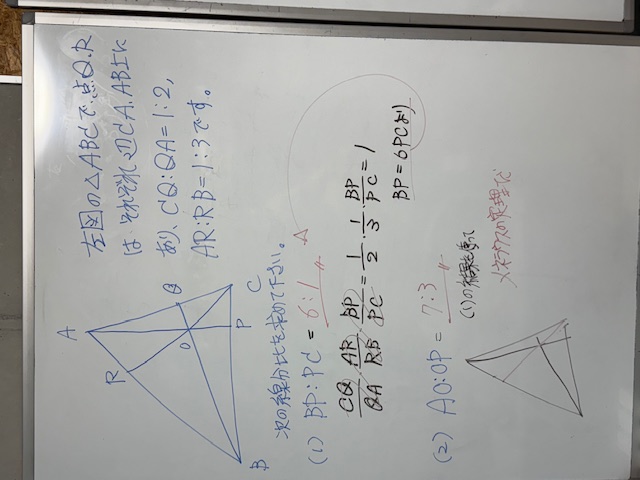 左図の△ABCで、点Q、R
は、それぞれ辺CA、AB上に
あり、CQ:QA=1:2,
AR:RB=1:3です。
A
R
Q
O
B
P
C
次の線分比を求めて下さい。
(1) BP:PC = 6:1
CQ/QA・AR/RB・BP/PC = 1/2・1/3・BP/PC = 1
BP=6PCより
(2) AO:OP = 7:3
(1)の結果を使って
メネラウスの定理で